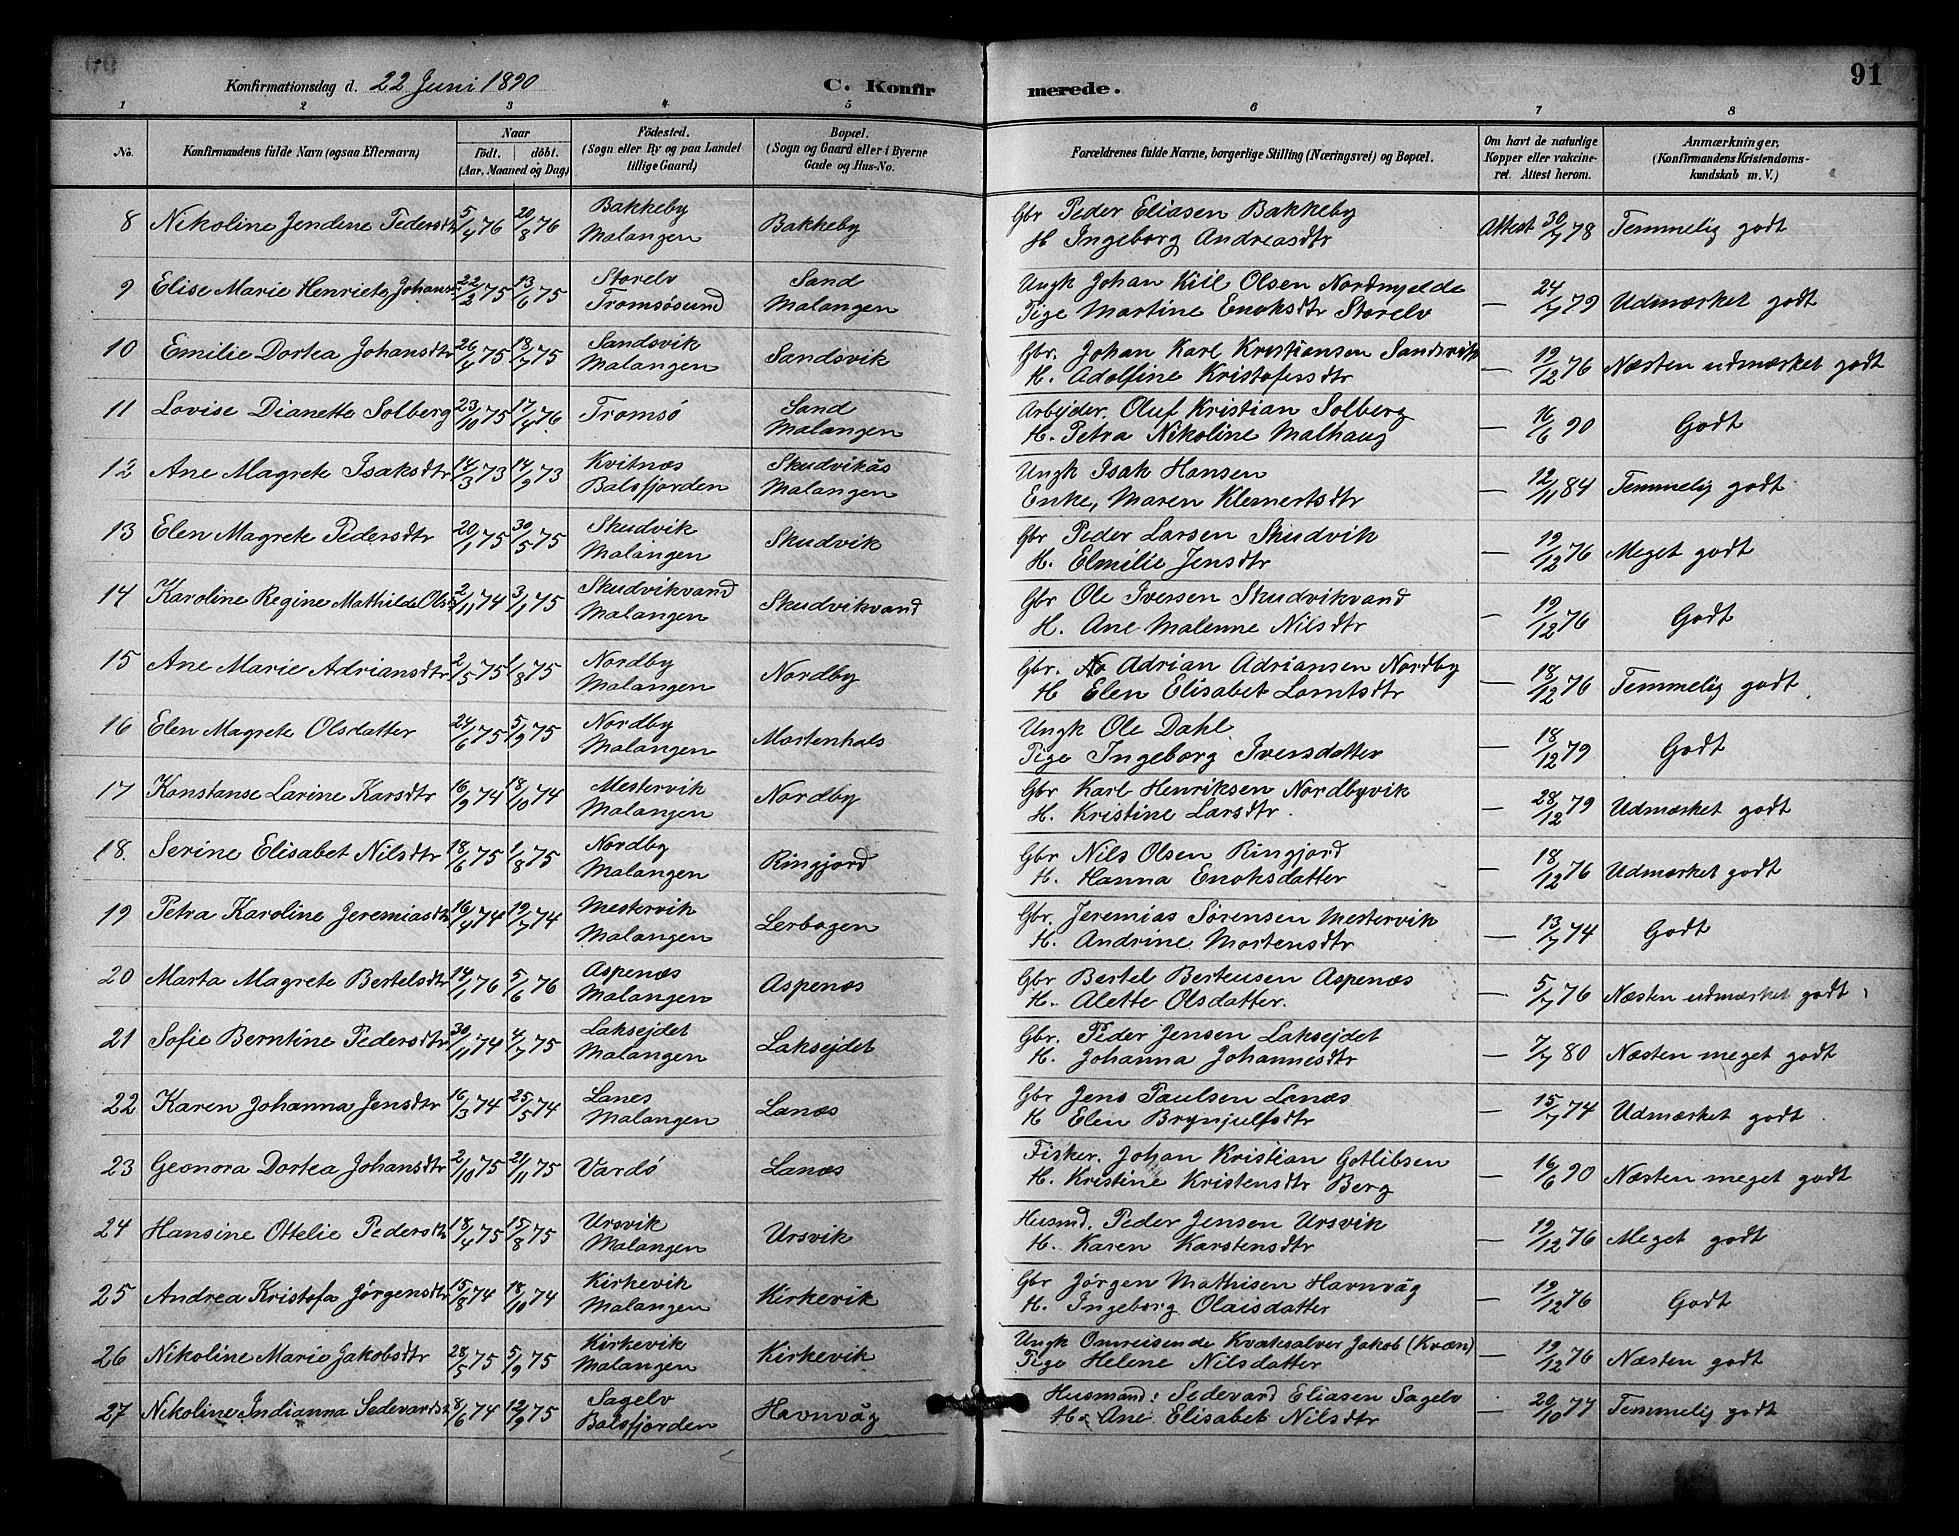 91
Konfirmationsdag d. 22 Juni 1890 C. Konfirmerede.
1 2 3 4 5 6 7 8
No.
Konfirmandens fulde Navn (ogsaa Efternavn)
Naar
födt. döbt.
(Aar, Maaned og Dag)
Födested.
(Sogn eller By og paa Landet
tillige Gaard)
Bopæl.
(Sogn og Gaard eller i Byerne
Gade og Hus-No.
Forældrenes fulde Navne, borgerlige Stilling (Næringsvei) og Bopæl.
Om havt de naturlige
Kopper eller vakcine-
ret. Attest herom.
Anmærkninger.
(Konfirmandens Kristendoms-
kundskab m. V.)
8 Nikoline Jendene Pedersdtr 5/4 76 20/8 76 Bakkeby Malangen Bakkeby Gbr Peder Eliasen Bakkeby
H Ingeborg Andreasdtr Attest 30/7 78 Temmelig godt
9 Elise Marie Henriete Johansd 22/2 75 13/6 75 Storelv Tromsøsund Sand Malangen Ungk Johan Kiil Olsen Nordmjelde
Pige Martine Enoksdtr Storelv — 24/7 79 Udmærket godt
10 Emilie Dortea Johansdtr 26/4 75 18/7 75 Sandsvik Malangen Sandsvik Gbr. Johan Karl Kristiansen Sandsvik
H. Adolfine Kristofersdtr — 19/12 76 Næsten udmærket godt
11 Lovise Dianette Solberg 23/10 75 17/4 76 Tromsø Sand Malangen Arbejder. Oluf Kristian Solberg
H. Petra Nikoline Malhaug — 16/6 90 Godt
12 Ane Magrete Isaksdtr 14/3 73 14/9 73 Kvitnæs Balsfjorden Skudvikås Malangen Ungk Isak Hansen
Enke, Maren Klemertsdtr — 12/11 84 Temmelig godt
13 Elen Magrete Pedersdtr 20/1 75 30/5 75 Skudvik Malangen Skudvik Gbr Peder Larsen Skudvik
H. Elmilie Jensdtr — 19/12 76 Meget godt
14 Karoline Regine Mathilde Olsd 2/11 74 3/1 75 Skudvikvand Malangen Skudvikvand Gbr Ole Iversen Skudvikvand
H. Ane Malenne Nilsdtr — 19/12 76 Godt
15 Ane Marie Adriansdtr 2/5 75 1/8 75 Nordby Malangen Nordby Gbr. Adrian Adriansen Nordby
H Elen Elisabet Lorntsdtr — 18/12 76 Temmelig godt
16 Elen Magrete Olsdatter 24/6 75 5/9 75 Nordby Malangen Mortenhals Ungk Ole Dahl
Pige Ingeborg Iversdatter — 18/12 79 Godt
17 Konstanse Larine Karsdtr 16/9 74 18/10 74 Mestervik Malangen Nordby Gbr Karl Henriksen Nordbyvik
H. Kristine Larsdtr. — 28/12 79 Udmærket godt
18. Serine Elisabet Nilsdtr 18/6 75 1/8 75 Nordby Malangen Ringjord Gbr Nils Olsen Ringjord
H. Hanna Enoksdatter — 18/12 76 Udmærket godt
19 Petra Karoline Jeremiasdtr 16/4 74 19/7 74 Mestervik Malangen Lerbogen Gbr. Jeremias Sørensen Mestervik
H. Andrine Mortensdtr — 13/7 74 Godt
20 Marta Magrete Bertelsdtr 14/1 76 5/6 76 Aspenæs Malangen Aspenæs Gbr Bertel Berteusen Aspenæs
H. Alette Olsdatter. — 5/7 76 Næsten udmærket godt
21 Sofie Berntine Pedersdtr 30/11 74 4/7 75 Laksejdet Malangen Laksejdet Gbr. Peder Jensen Laksejdet
H. Johanna Johannesdtr — 7/7 80 Næsten meget godt
22 Karen Johanna Jensdtr 16/3 74 25/5 74 Lanes Malangen Lanæs Gbr Jens Paulsen Lanæs
H Elen Brynjulfsdtr — 15/7 74 Udmærket godt
23 Geonora Dortea Johansdtr 2/10 75 21/11 75 Vardö Lanæs Fisker. Johan Kristian Gotlibsen
H. Kristine Kristensdtr Berg — 16/6 90 Næsten meget godt
24 Hansine Ottelie Pedersdtr 18/4 75 15/8 75 Ursvik Malangen Ursvik Husmd. Peder Jensen Ursvik
H. Karen Karstensdtr — 19/12 76 Meget godt
25 Andrea Kristofa Jørgensdtr 15/8 74 18/10 74 Kirkevik Malangen Kirkevik Gbr Jørgen Mathisen Havnvåg
H. Ingeborg Olaisdatter — 19/12 76 Godt
26 Nikoline Marie Jakobsdtr 28/5 75 5/9 75 Kirkevik Malangen Kirkevik Ungk Omreisende Kvaksalver Jakob (Kvæn)
Pige Helene Nilsdatter — 19/12 76 Næsten godt
27 Nikoline Indianna Sedevardsd 8/6 74 12/9 75 Sagelv Balsfjorden Havnvåg Husmand: Sedevard Eliasen Sagelv
H. Ane Elisabet Nilsdtr — 20/10 77 Temmelig godt